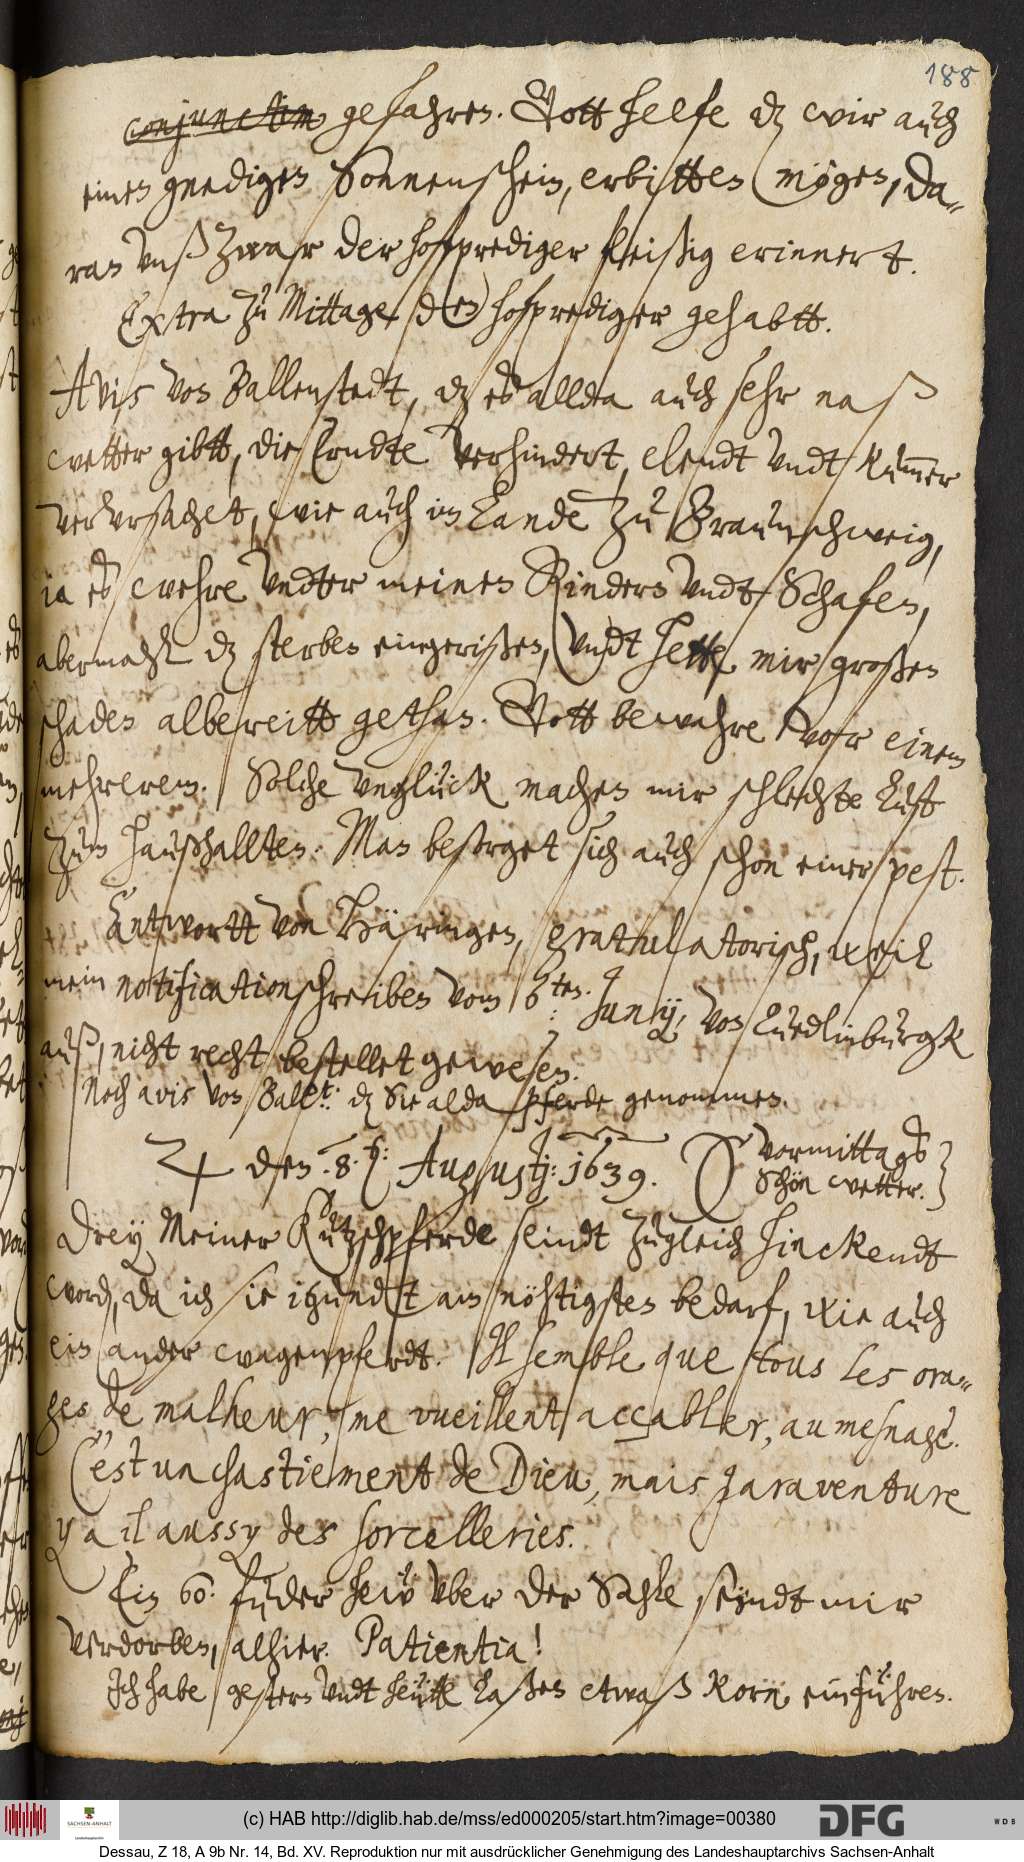 188
conjunctim gefahren. Gott helfe dz wir auch
einen gnedigen Sonnenschein, erbitten mögen, da-
ran unß zwar der hofprediger fleißig erinnert.
Extra zu Mittage den hofprediger gehabtt.
Avis von Ballenstedt, dz es allda auch sehr naß
wetter gibtt, die Erndte verhindert, elendt undt kummer
verursachet, wie auch im Lande zu Braunschweig,
ia es wehre undter meinen Rindern undt Schafen,
abermahl dz sterben eingerißen, undt hette mir großen
schaden albereitt gethan. Gott bewahre vor einem
mehrerem. Solche unglück machen mir schlechte lust
zum haußhallten. Man besorget sich auch schon einer pest.
Antwortt von gratulatorisch, weil
mein notificationschreiben vom 6ten: Junij, von Quedlinburgk
auß, nicht recht bestellet gewesen.
Noch avis von Ball.t: dz Sie alda pferde genommen.
♃ den 8. Augustj: 1639. Vormittags
Schön wetter.
Drey Meiner Kutzschpferde seindt zugleich hinckendt
word, da ich sie itzundt am nöhtigsten bedarf, wie auch
ein ander wagenpferdt. Il semble que tous les ora-
ges de malheur, me vueillent accabler, au mesnage.
C'est un chastiement de Dieu, mais paraventure
y a il aussy des sorcelleries.
Ein 60. fuder hew uber der Sahle seindt mir
verdorben, alhier. Patientia!
Ich habe gestern undt heutte laßen etwaß Korn einführen.
(c) HAB http://diglib.hab.de/mss/ed000205/start.htm?image=00380
SACHSEN-ANHALT
Landeshauptarchiv
DFG
WDB
Dessau, Z 18, A 9b Nr. 14, Bd. XV. Reproduktion nur mit ausdrücklicher Genehmigung des Landeshauptarchivs Sachsen-Anhalt